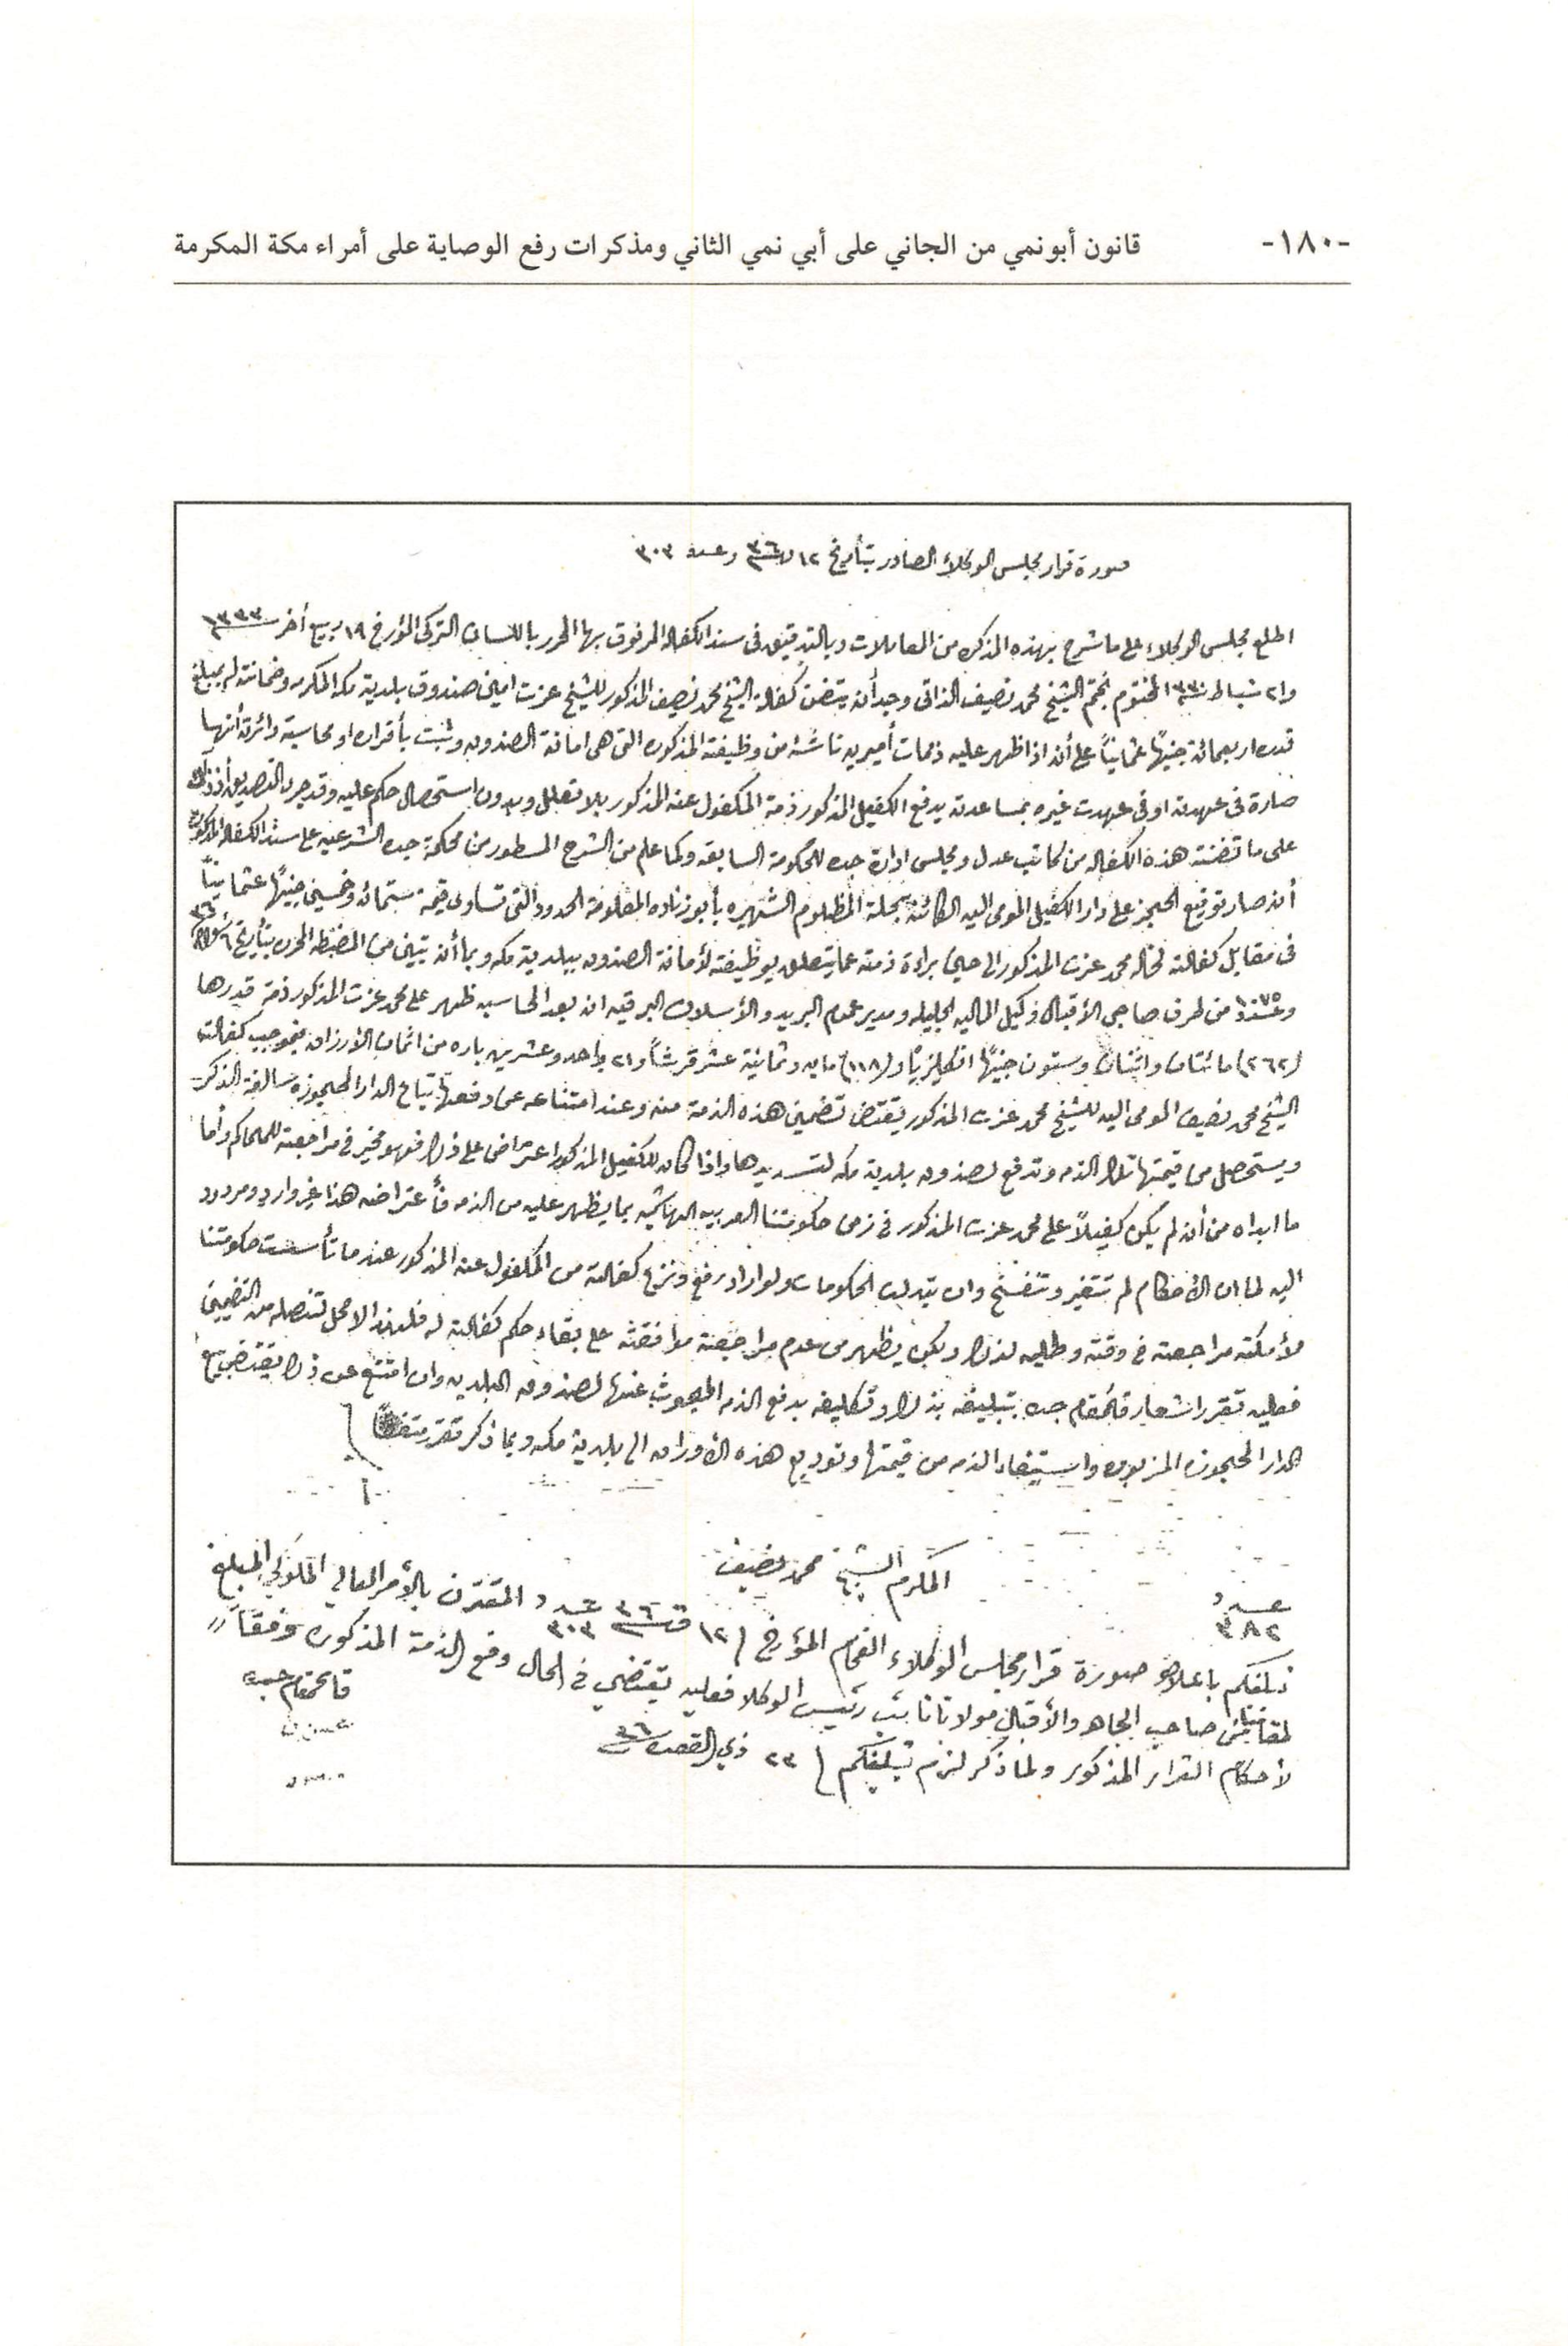 -١٨٠- قانون أبونمي من الجاني على أبي نمي الثاني ومذكرات رفع الوصاية على أمراء مكة المكرمة
صورة قرار مجلس الوكلاء الصادر بتأريخ ١٢ ٣٦ وعدد ٣٠٣
اطلع مجلس الوكلاء على ما شرح بهذه المذكره من المعاملات وبالتدقيق فى سند الكفاله المرفوق بها المحرر باللسان التركى المؤرخ ١٩ ربيع أخر ١٣٣٣
و٢١ شباط ١٣٣٠ المختوم بختم الشيخ محمد نصيف الذاتى وجد أنه يتضمن كفالة الشيخ محمد نصيف المذكور للشيخ عزت امين صندوق بلدية مكه المكرمه وضمانته له بمبلغ
قدره اربعمائة جنيهاً عثمانياً على أنه اذا ظهر عليه ذممات أميريه ناشئه من وظيفته المذكوره التى هى امانة الصندوق وثبت بأقراره او محاسبة دائرته أنها
صارة فى عهدته او فى عهدت غيره بمساعدته يدفع الكفيل المذكور ذمة المكفول عنه المذكور بلا تعلل وبدون استحصال حكم عليه وقد جرى التصديق أذ ذاك
على ما تضمنته هذه الكفاله من كاتب عدل ومجلس ادارة جده للحكومة السابقه وكما علم من الشرح المسطور من محكمة جده الشرعيه على سند الكفاله المذكوره
أنه صار توقيع الحجز على دار الكفيل المومى اليه الكائنه بمحلة المظلوم الشهيره بأبو زناده المعلومة الحدود التى تساوى قيمة ستمائه وخمسين جنيهاً عثمانياً
فى مقابل كفالته لخاله محمد عزت المذكور الى حين براءة ذمته عما يتعلق بوظيفته لأمانة الصندوق ببلدية مكه وبما أنه تبين من المضبطه المحرره بتأريخ ٦ ٣٦
وعدد ٧٥ من طرف صاحبى الأقبال وكيل الماليه الجليله ومدير عموم البريد والأسلاك البرقيه انه بعد المحاسبه ظهر على محمد عزت المذكور ذمة قدرها
(٢٦٢) مائتان واثنان وستون جنيهاً انكليزياً و(١١٨) مايه وثمانية عشر قرشاً و٢١ واحد وعشرين باره من اثمان الأرزاق فبموجب كفالة
الشيخ محمد نصيف المومى اليه للشيخ محمد عزت المذكور يقتضى تضمين هذه الذمة منه وعند امتناعه عن دفعها تباع الدار المحجوزه سالفة الذكر
ويستحصل من قيمتها تلك الذمه وتدفع لصندوق بلدية مكه لتسديدها واذا كان للكفيل المذكور اعتراض على ذلك فهو مخير فى مراجعته للمحاكم وأما
ما ابداه من أنه لم يكن كفيلاً على محمد عزت المذكور فى زمن حكومتنا العربيه الهاشميه بما يظهر عليه من الذمه فأعتراضه هذا غير وارد ومردود
اليه لما ان الأحكام لم تتغير وتنفسخ وان تبدلت الحكومات ولو اراد رفع ونزع كفالته من المكفول عنه المذكور عندما تأسست حكومتنا
لأمكنه مراجعته فى وقته وطلبه لذلك ولكن يظهر من عدم مراجعته موافقته على بقاء حكم كفالته له فلهذا لا محل لتنصله من التضمين
فعليه تقرر اشعار قائمقام جده بتبليغه بذلك وتكليفه بدفع الذمه المبحوث عنها لصندوق البلديه وان امتنع عن ذلك يقتضى بيع
الدار المحجوزه المزبوره واستيفاء الذمه من قيمتها وتوديع هذه الأوراق الى بلدية مكه وبما ذكر تقرر متفقاً
عدد
٣٨٢
المكرم الشيخ محمد نصيف
نبلغكم باعلاه صورة قرار مجلس الوكلاء الفخام المؤرخ ١٢ ق ٣٦ عدد ٣٠٣ المقترن بالأمر العالي الملوكي المبلغ
لمقامنا من صاحب الجاه والأقبال مولانا نائب رئيس الوكلا فعليه يقتضي في الحال دفع الذمة المذكوره وفقاً
لأحكام القرار المذكور ولما ذكر لزم تبليغكم ٢٣ ذي القعده ٣٦
قائمقام جده